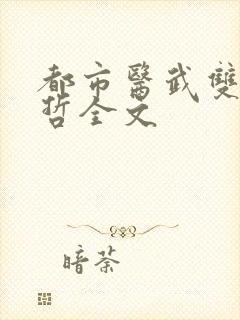 都市醫武雙
哲全文
暗荼